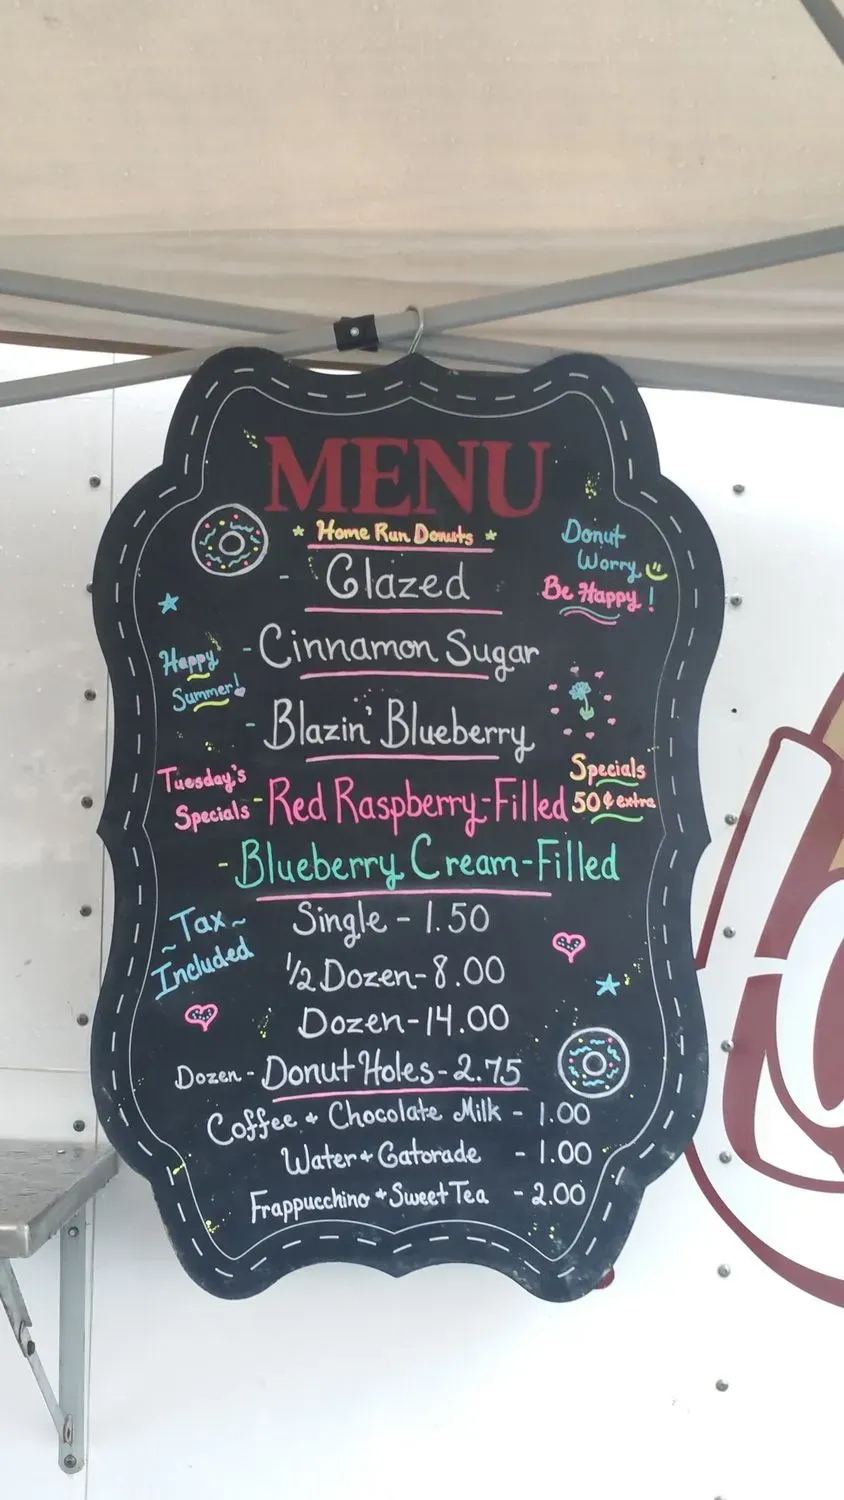 MENU
* Home Run Donuts *
- Glazed
Donut
Worry
Be Happy!
- Cinnamon Sugar
Happy
Summer!
- Blazin' Blueberry
Tuesday's
Specials
- Red Raspberry-Filled
Specials
50¢ extra
- Blueberry Cream-Filled
~Tax~
Included
Single - 1.50
1/2 Dozen - 8.00
Dozen - 14.00
Dozen - Donut Holes - 2.75
Coffee + Chocolate Milk - 1.00
Water + Gatorade - 1.00
Frappucchino + Sweet Tea - 2.00